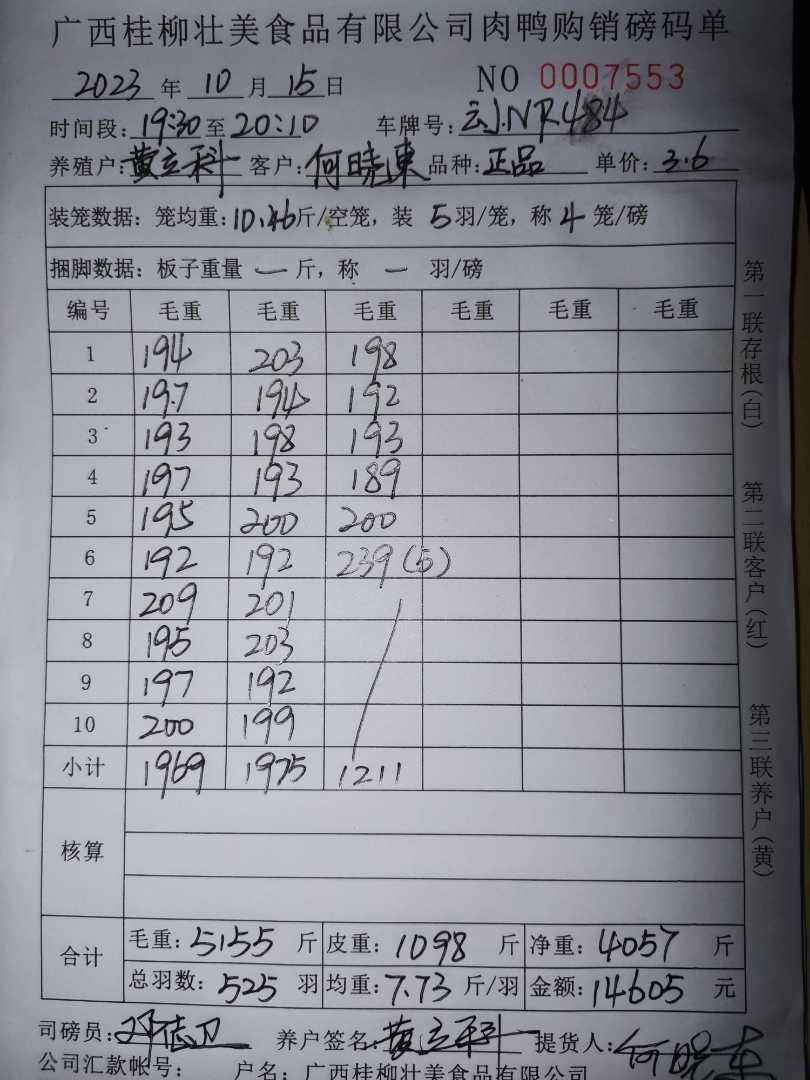 广西桂柳壮美食品有限公司肉鸭购销磅码单
2023 年 10 月 15 日 NO 0007553
时间段: 19:30 至 20:10 车牌号: 云J.NR484
养殖户: 黄立科 客户: 何晓東 品种: 正品 单价: 3.6
装笼数据: 笼均重: 10.46 斤/空笼, 装 5 羽/笼, 称 4 笼/磅
捆脚数据: 板子重量 一 斤, 称 一 羽/磅
编号 毛重 毛重 毛重 毛重 毛重 毛重
1 194 203 198
2 197 194 192
3 193 198 193
4 197 193 189
5 195 200 200
6 192 192 239(5)
7 209 201
8 195 203
9 197 192
10 200 199
小计 1969 1975 1211
核算
合计 毛重: 5155 斤 皮重: 1098 斤 净重: 4057 斤
总羽数: 525 羽 均重: 7.73 斤/羽 金额: 14605 元
司磅员: 邓志卫 养户签名: 黄立科 提货人: 何晓东
公司汇款帐号: 户名: 广西桂柳壮美食品有限公司
第一联存根(白)
第二联客户(红)
第三联养户(黄)